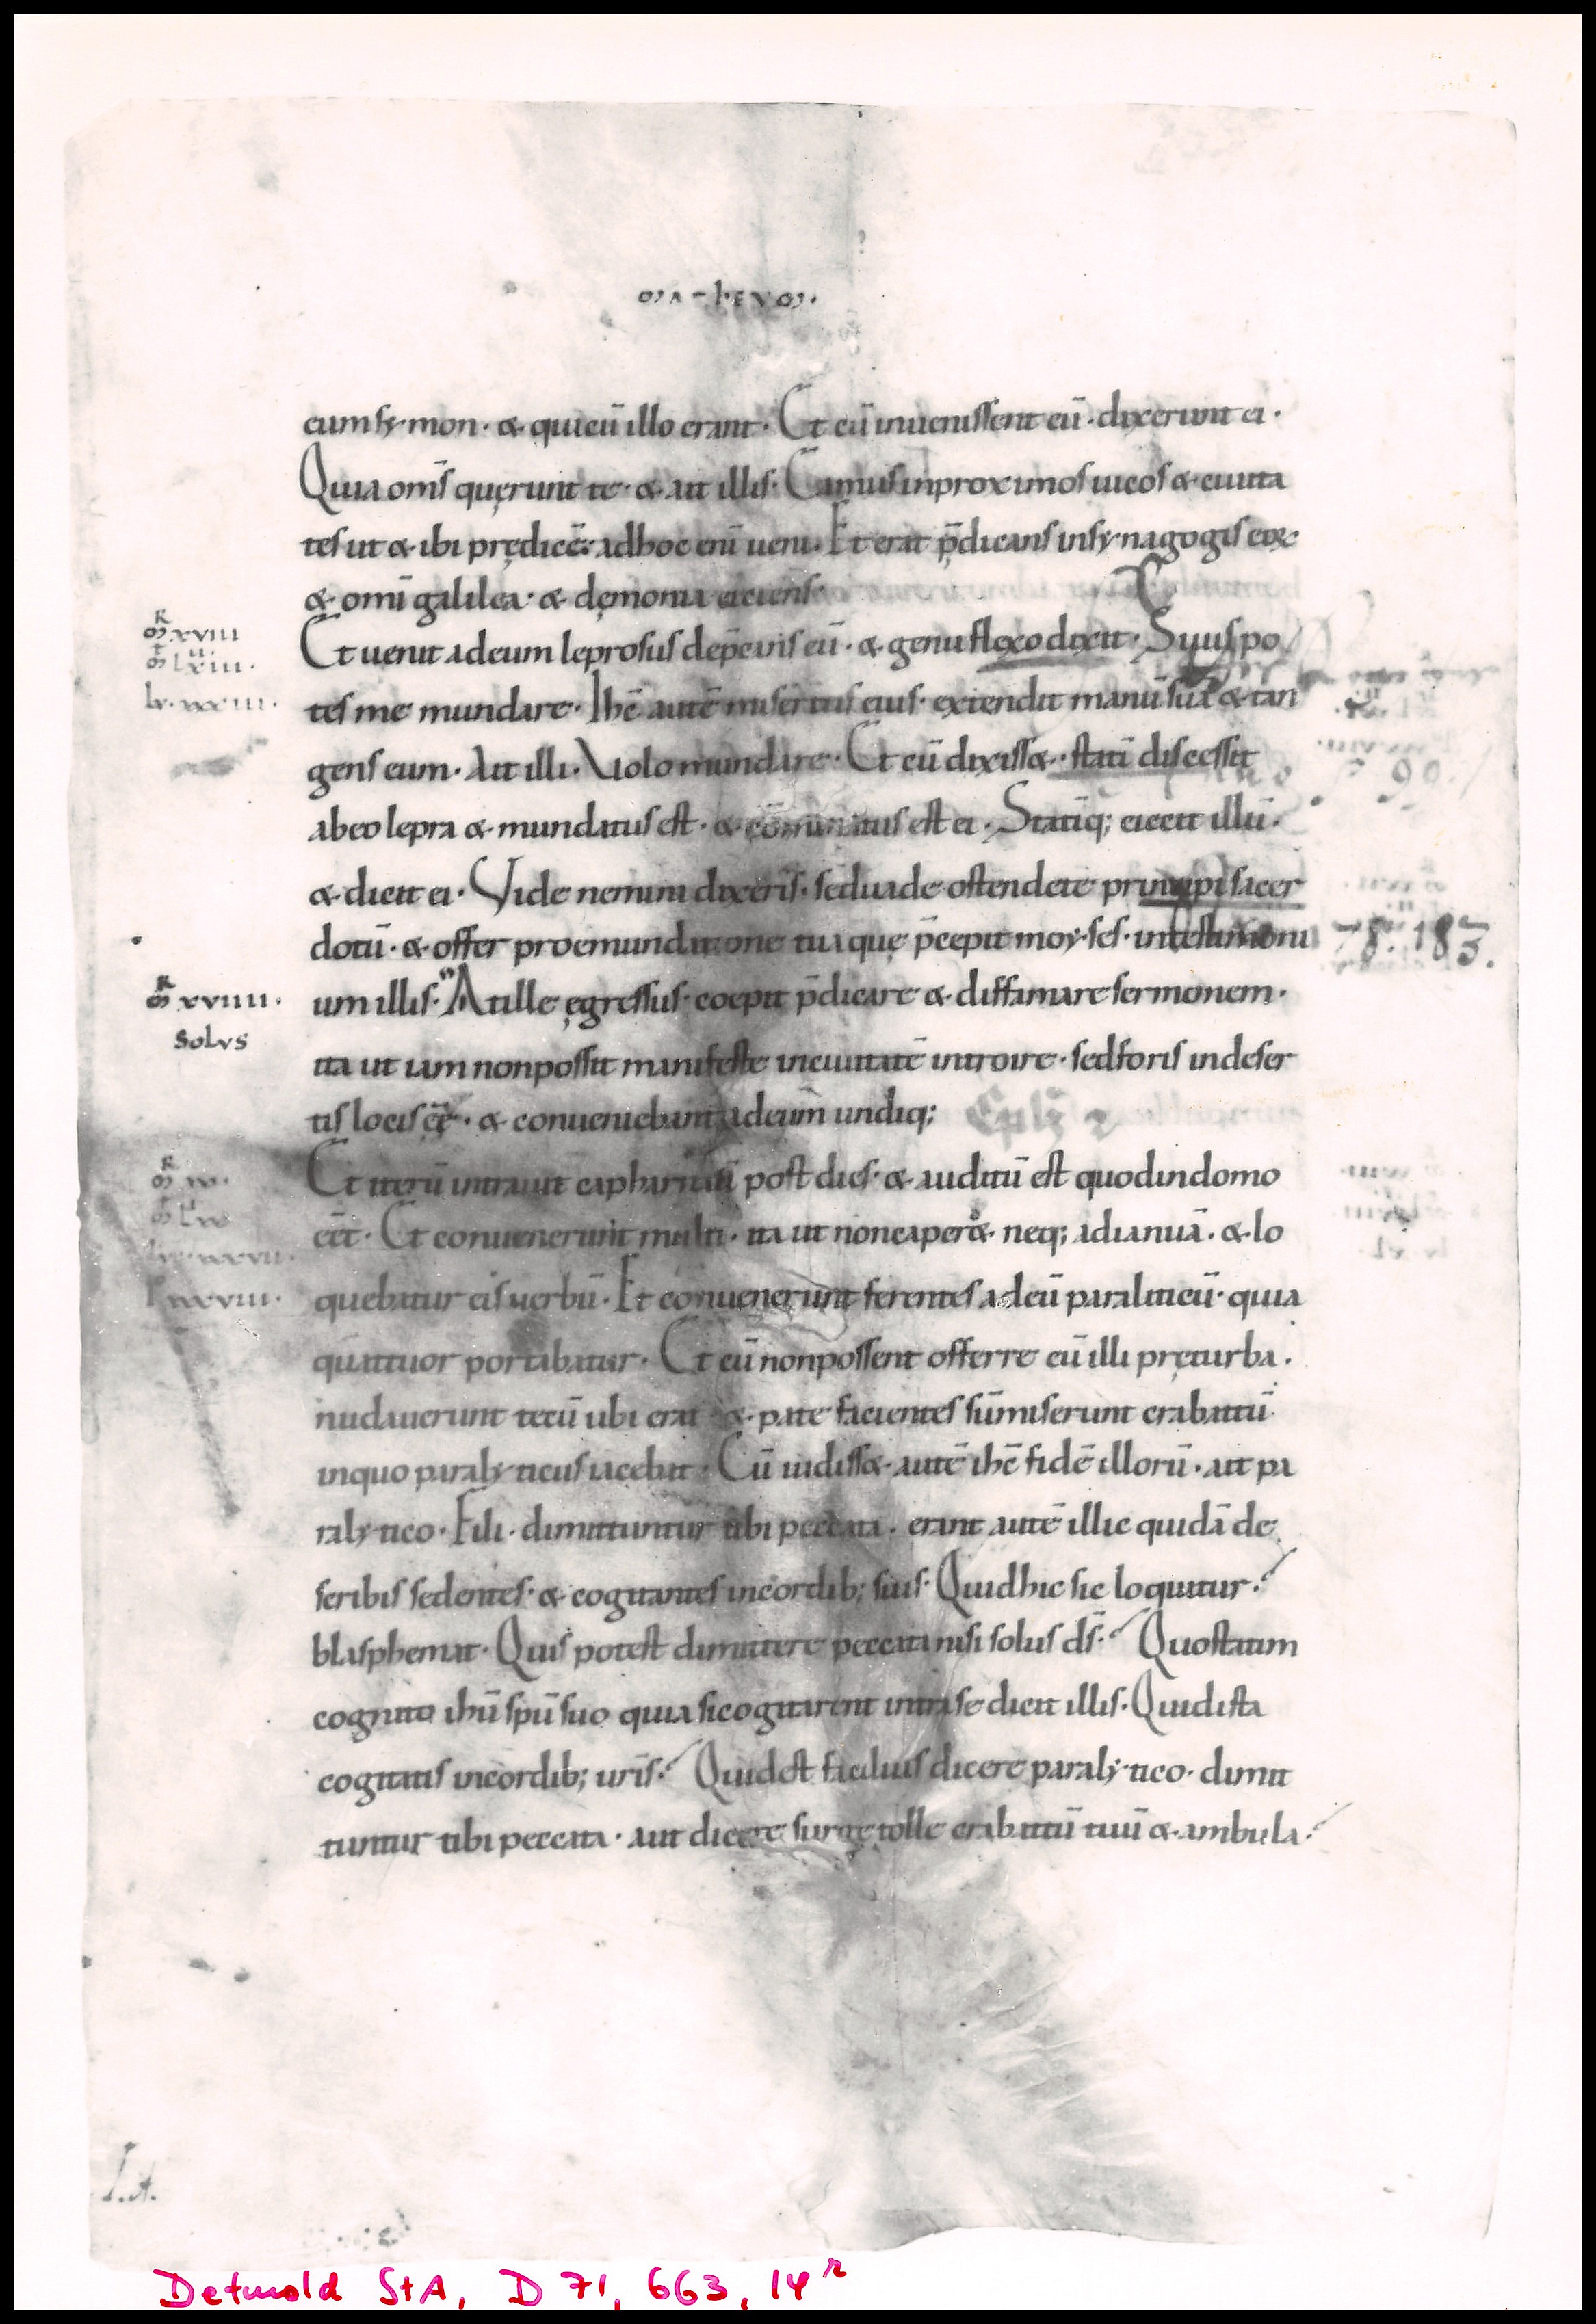 cumsymon · & quicū illo erant · Et cū inuenissent eū · dixerunt ei ·
Quia om̄s quęrunt te · & ait illis · Eamus inproximos uicos & ciuita
tes ut & ibi prędicē · adhoc enī ueni · Et erat p̄dicans insynagogis eoꝝ
& omī galilea · & dęmonia eiciens ·
R
ᴍ xviii
Et uenit adeum leprosus dep̄cans eū · & genu flexo dixit · Syuis po
lxiii ·
tes me mundare · Ihc̄ autē misertus eius · extendit manū suā & tan
gens eum · Ait illi · Uolo mundare · Et cū dixiss& · statī discessit
abeo lepra & mundatus est · & cōminatus est ei · Statīq; eiecit illū ·
& dicit ei · Vide nemini dixeris · seduade ostendete principi sacer
dotū · & offer proemundatione tua quę p̄cepit moyses · intestimoni
78 · 183 ·
R
ᴍ xviiii ·
um illis · At ille ęgressus · coepit p̄dicare & diffamare sermonem ·
solvs
ita ut iam nonpossit manifeste inciuitatē introire · sedforis indeser
tis locis ēē · & conueniebant adeum undiq;
Et iterū intrauit capharnaū post dies · & auditū est quodindomo
eēt · Et conuenerunt multi · ita ut noncaper& · neq; adianuā · & lo
quebatur eis uerbū · Et conuenerunt ferentes adeū paraliticū · quia
quattuor portabatur · Et cū nonpossent offerre eū illi pręturba ·
nudauerunt tectū ubi erat · & · patefacientes sūmiserunt crabattū
inquo paralyticus iacebat · Cū uidiss& · autē ihc̄ fidē illorū · ait pa
ralytico · Fili · dimittuntur tibi peccata · erant autē illic quidā de
scribis sedentes · & cogitantes incordib; suis · Quidhic sic loquitur ·
blasphemat · Quis potest dimittere peccata nisi solus ds̄ · Quostatim
cognito ihū spū suo quia sicogitarent intra se dicit illis · Quidista
cogitatis incordib; uris̄ · Quidest facilius dicere paralytico · dimit
tuntur tibi peccata · aut dicere surge tolle crabattū tuū & ambula ·
Detmold StA, D 71, 663, 14ʳ